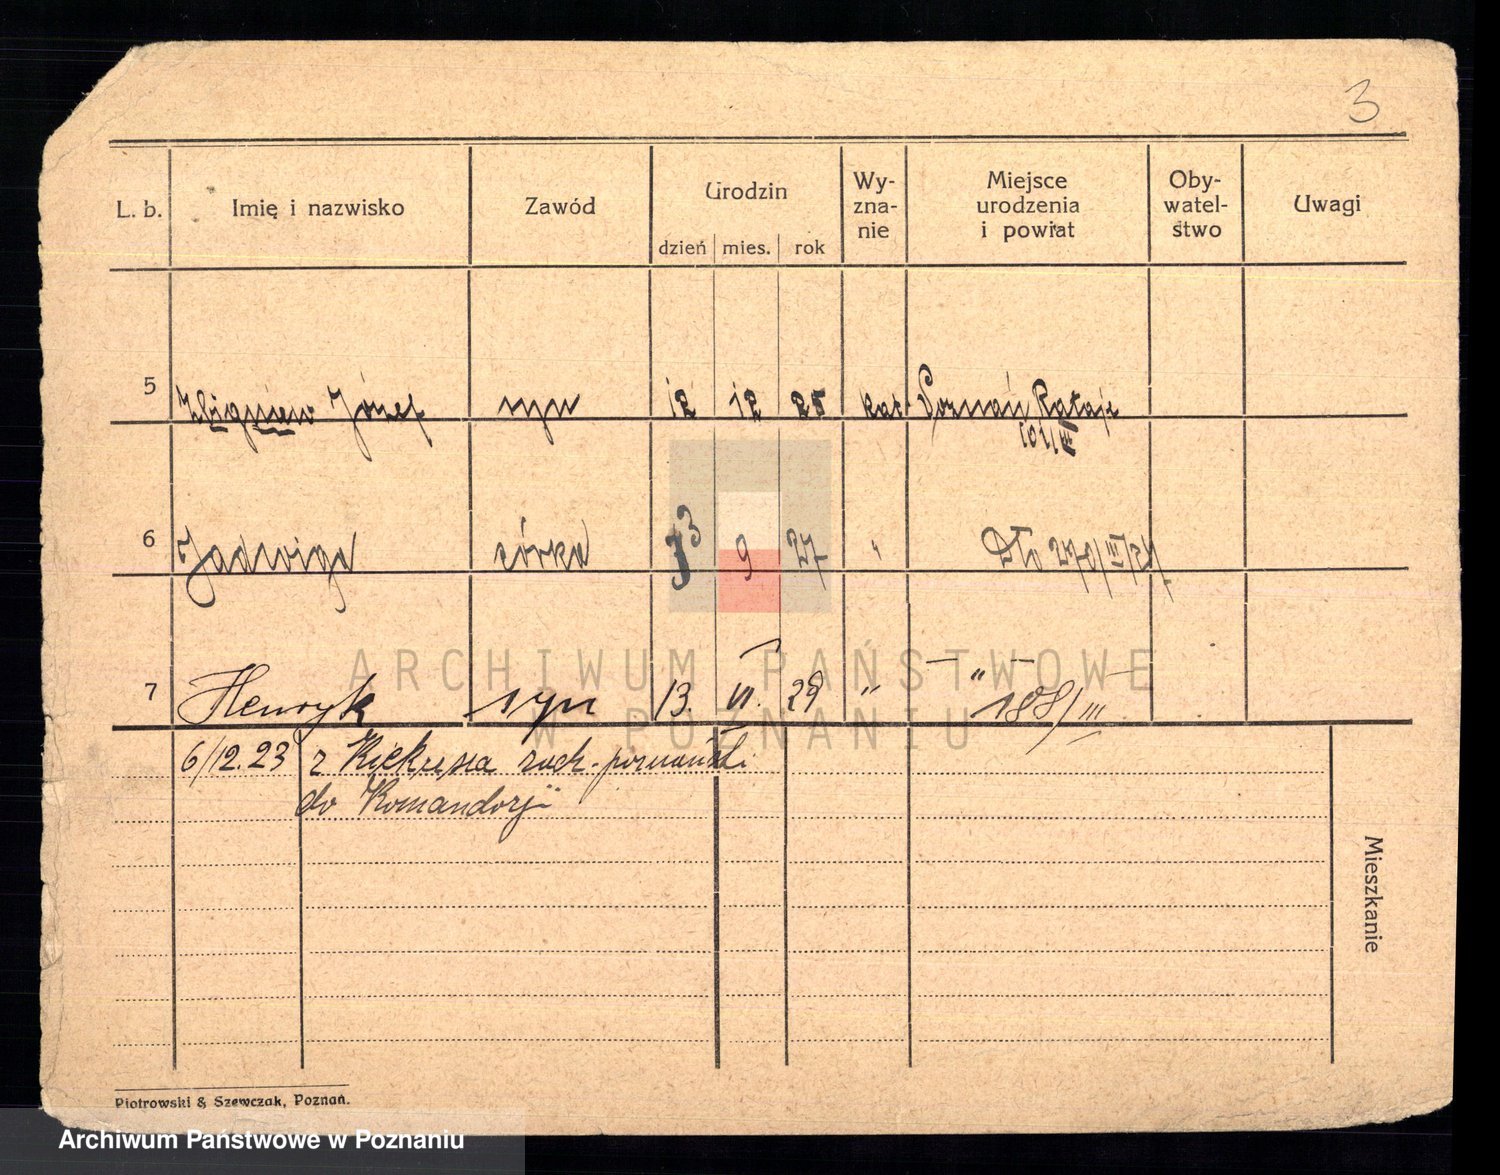 3
L. b. Imię i nazwisko Zawód Urodzin Wyznanie Miejsce urodzenia i powiat Obywatelstwo Uwagi
dzień mies. rok
5 Zbigniew Józef syn 12 12 25 kat. Poznań Rataje
101/III
6 Jadwiga córka 13 9 27 " 270/III/27
7 Henryk syn 13. VI. 29 " — " —
188/III
6/12.23 z Kiekrza zach. poznański
do Komandorji
Mieszkanie
Piotrowski & Szewczak, Poznań.
ARCHIWUM PAŃSTWOWE
W POZNANIU
Archiwum Państwowe w Poznaniu